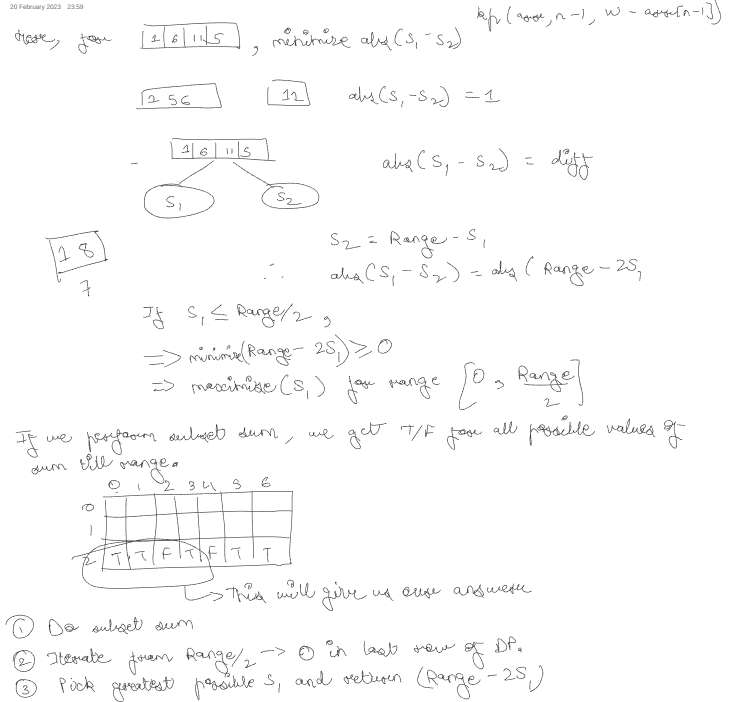 20 February 2023 23:59
kp(arr, n-1, w - arr[n-1])
Here, for 1 6 11 5, minimize abs(S1-S2)
1 5 6 12 abs(S1-S2) = 1
1 6 11 5
S1 S2 abs(S1 - S2) = diff
1 8
7
S2 = Range - S1
∴ abs(S1 - S2) = abs(Range - 2S1
If S1 ≤ Range/2,
=> minimize(Range - 2S1) ≥ 0
=> maximize(S1) for range [0, Range/2]
If we perform subset sum, we get T/F for all possible values of
sum till range.
0 1 2 3 4 5 6
0
1
2 T T F T F T T
This will give us our answer
① Do subset sum
② Iterate from Range/2 -> 0 in last row of DP.
③ Pick greatest possible S1 and return (Range - 2S1)